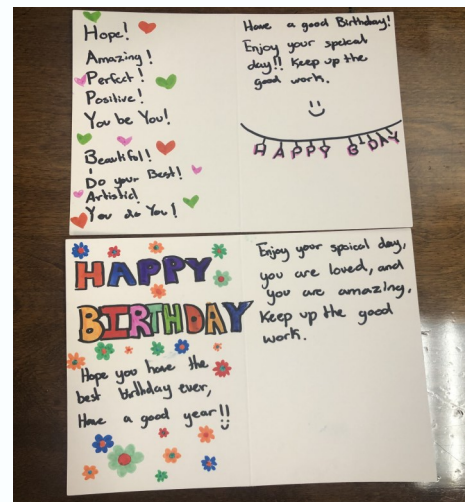 Hope!
Amazing!
Perfect!
Positive!
You be You!
Beautiful!
Do your Best!
Artistic!
You do You!
Have a good Birthday!
Enjoy your speical
day!! Keep up the
good work.
HAPPY B DAY
HAPPY
BIRTHDAY
Hope you have the
best birthday ever,
Have a good year!!
Enjoy your spoical day,
you are loved, and
you are amazing.
Keep up the good
work.